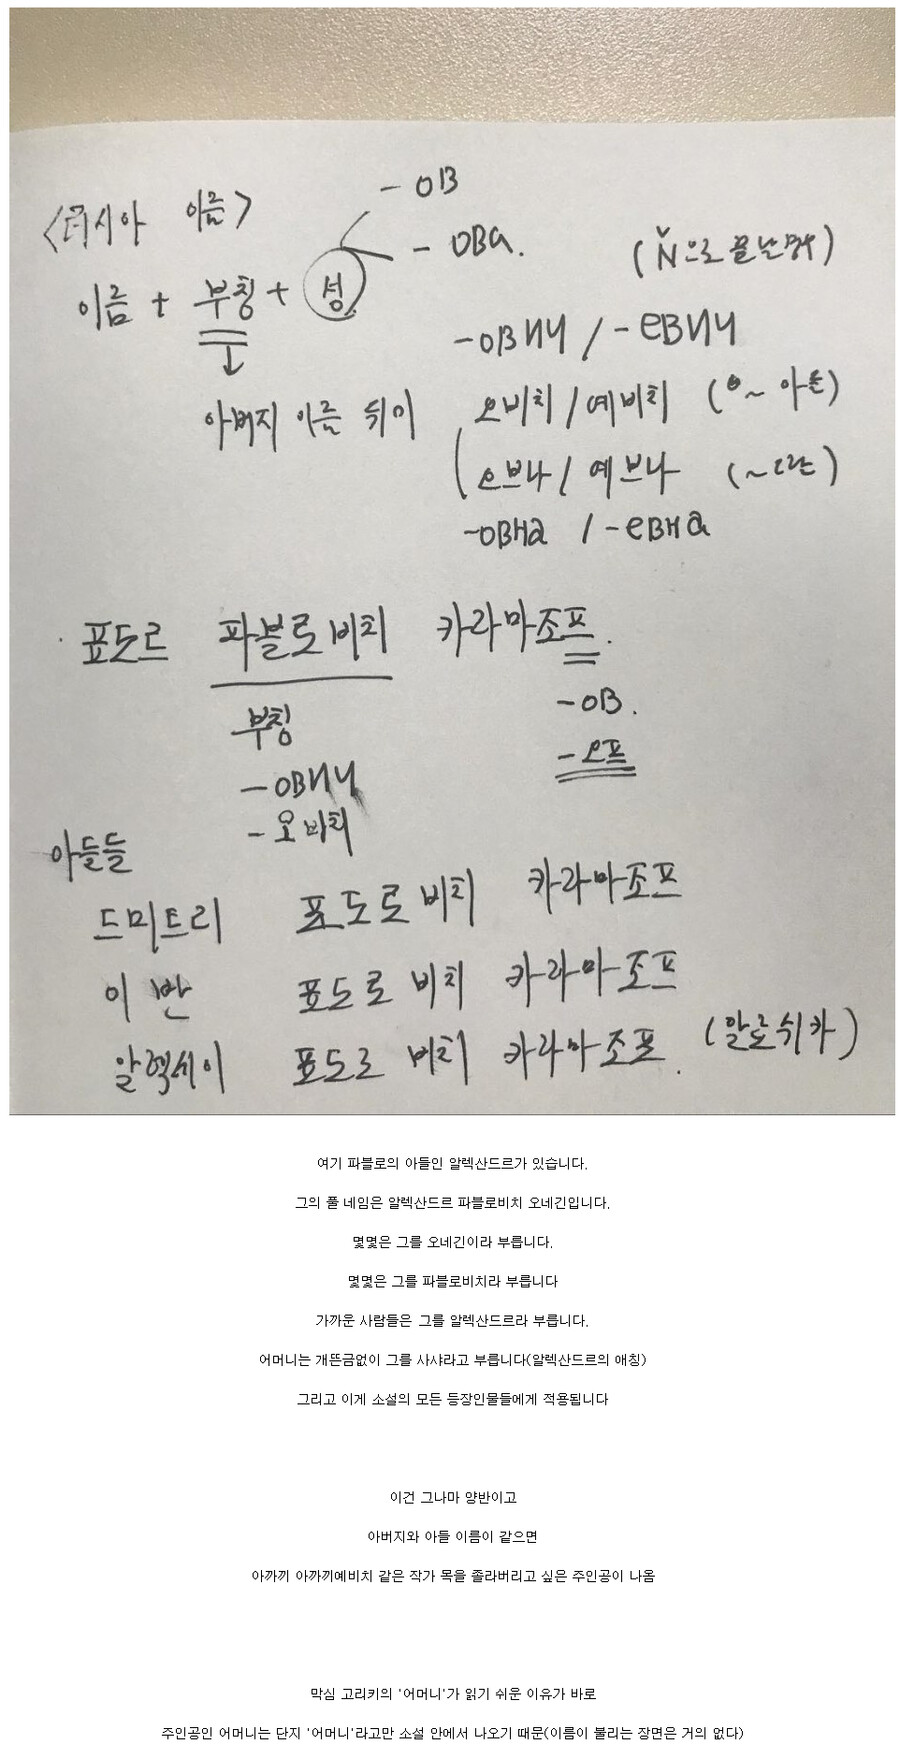 <러시아 이름>
- ов
- ова.
이름 + 부칭 + 성
(й으로 끝난 명사)
-ович / -евич
아버지 이름 뒤에 오비치 / 예비치 (~ 아들)
오브나 / 예브나 (~ 딸)
-овна / -евна
표도르 파블로비치 카라마조프.
부칭
-ов.
-오프
-ович
-오비치
아들들
드미트리 표도로비치 카라마조프
이반 표도로비치 카라마조프
알렉세이 표도르비치 카라마조프. (알료쉬카)
여기 파블로의 아들인 알렉산드르가 있습니다.
그의 풀 네임은 알렉산드르 파블로비치 오네긴입니다.
몇몇은 그를 오네긴이라 부릅니다.
몇몇은 그를 파블로비치라 부릅니다
가까운 사람들은 그를 알렉산드르라 부릅니다.
어머니는 개뜬금없이 그를 사샤라고 부릅니다(알렉산드르의 애칭)
그리고 이게 소설의 모든 등장인물들에게 적용됩니다
이건 그나마 양반이고
아버지와 아들 이름이 같으면
아까끼 아까끼예비치 같은 작가 목을 졸라버리고 싶은 주인공이 나옴
막심 고리키의 '어머니'가 읽기 쉬운 이유가 바로
주인공인 어머니는 단지 '어머니'라고만 소설 안에서 나오기 때문(이름이 불리는 장면은 거의 없다)